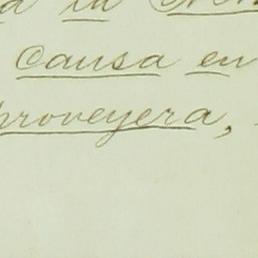 la
Causa en
proveyera,